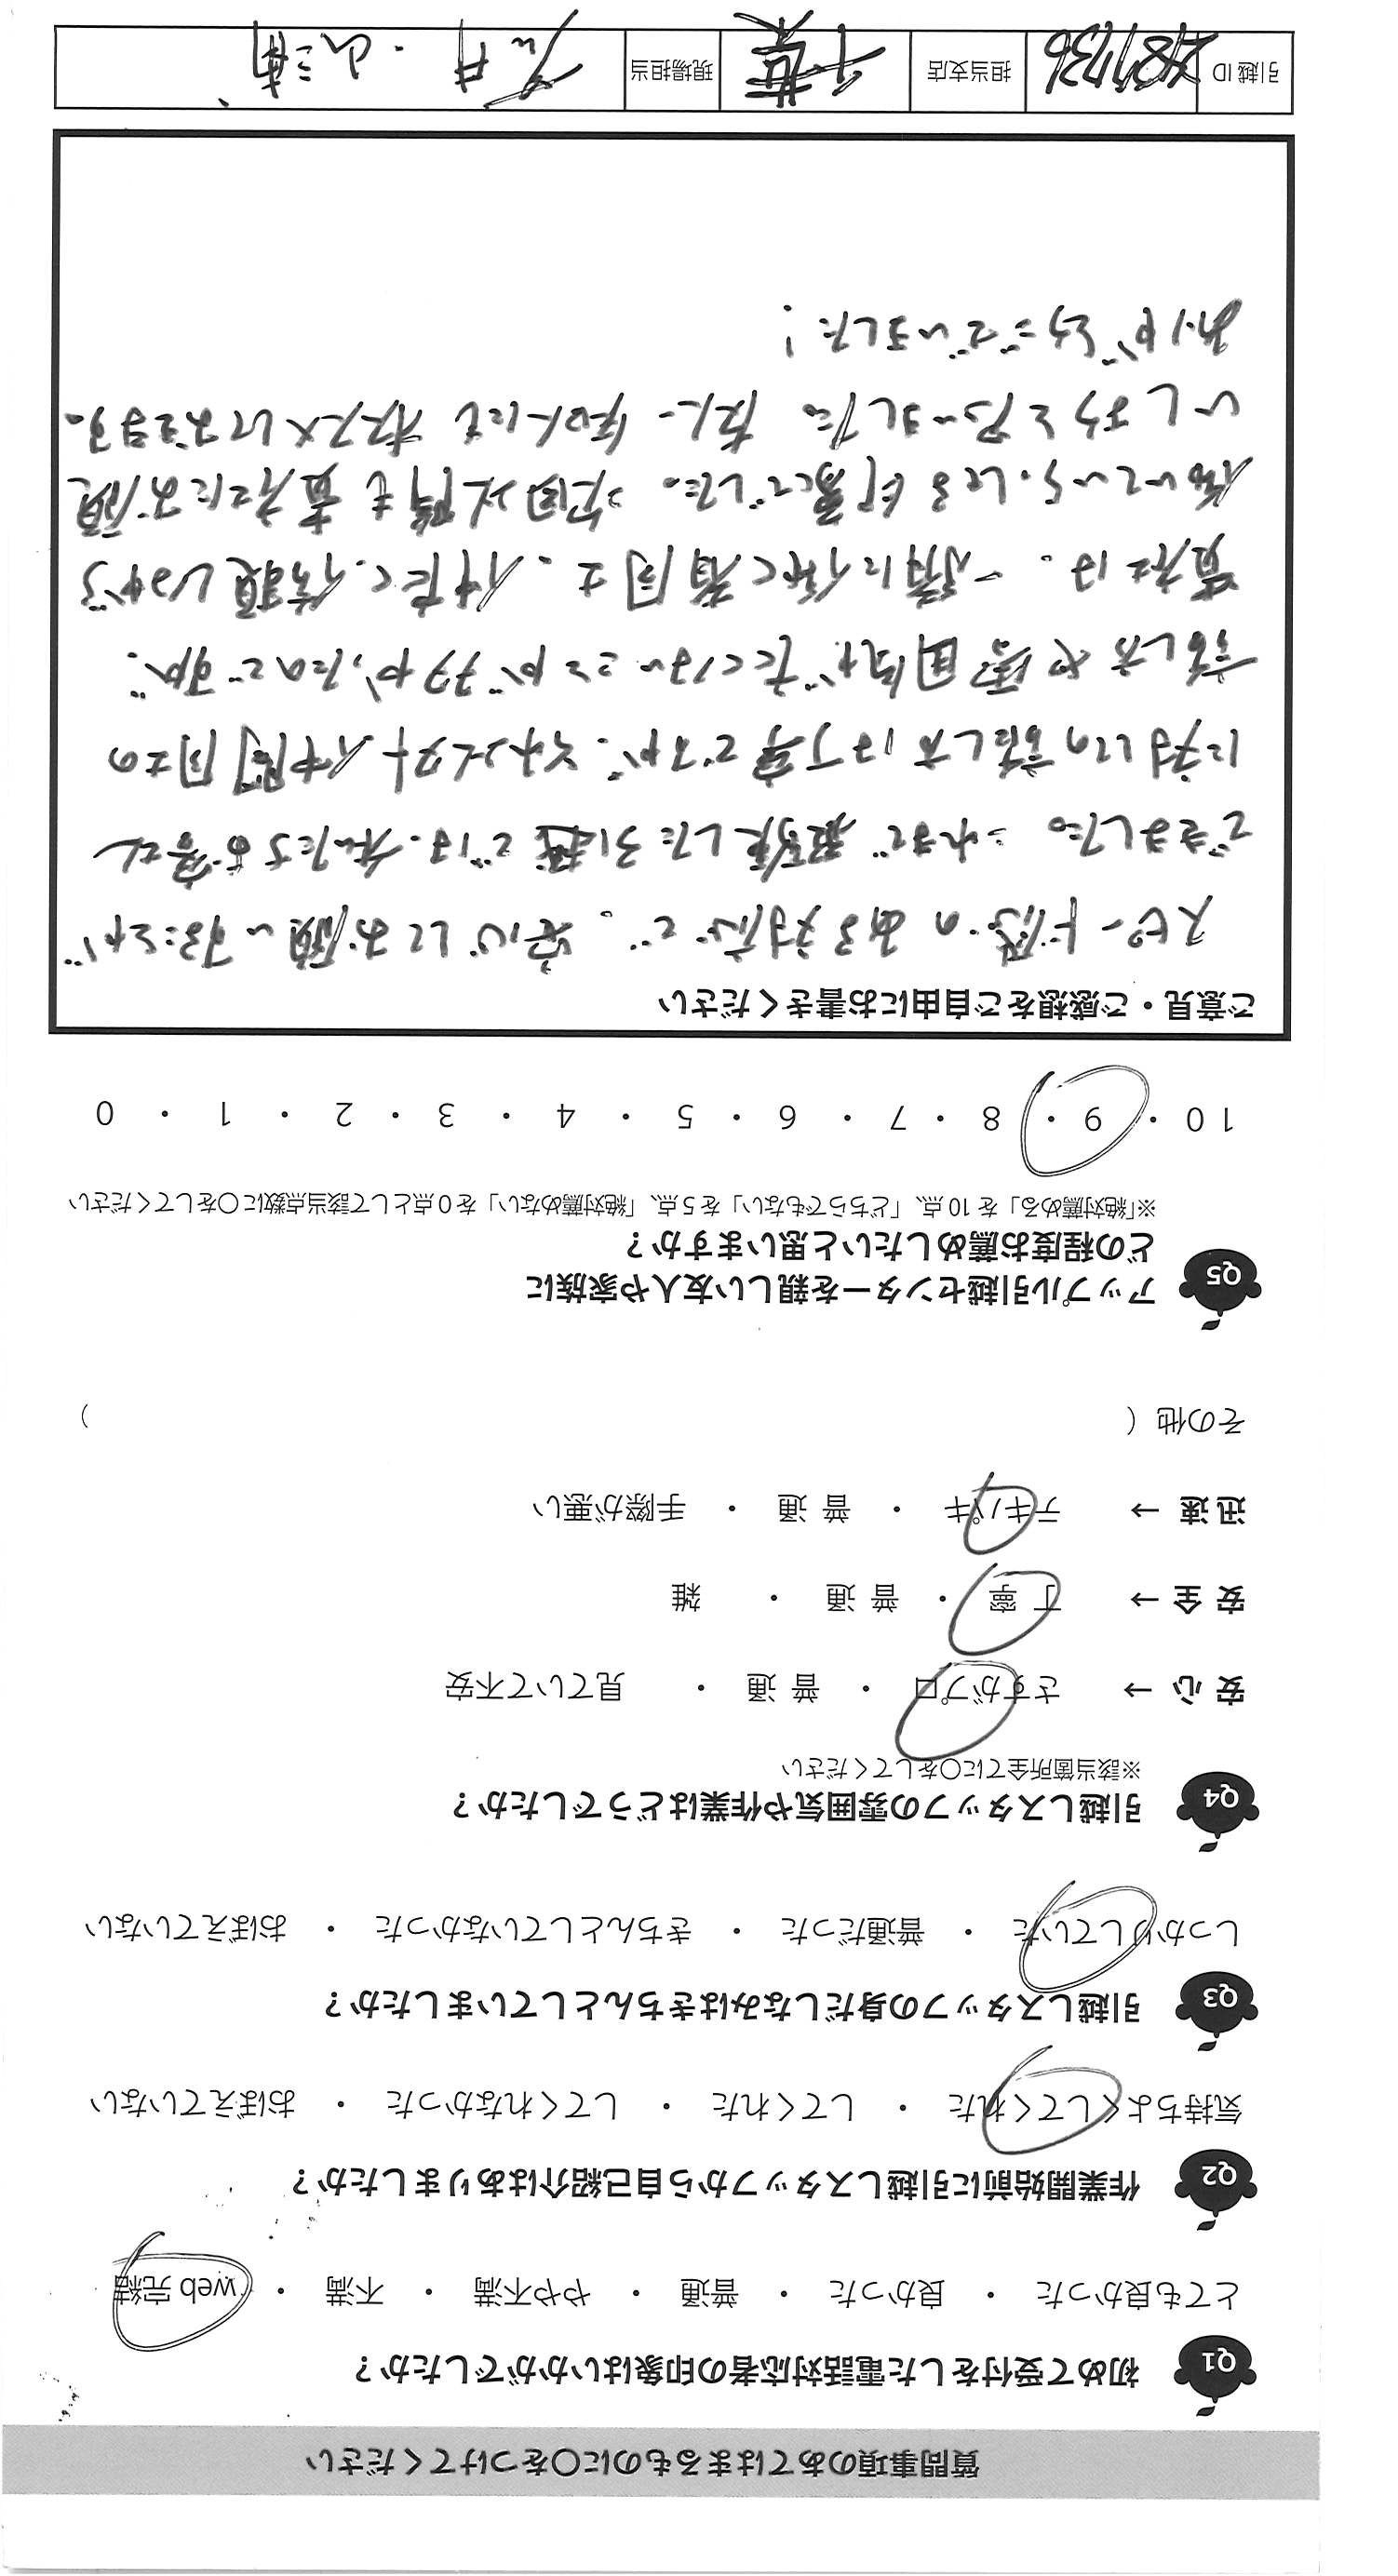 質問事項のあてはまるものに〇をつけてください
Q1 初めて受付をした電話対応者の印象はいかがでしたか？
とても良かった ・ 良かった ・ 普通 ・ やや不満 ・ 不満 ・ web 完結
Q2 作業開始前に引越しスタッフから自己紹介はありましたか？
気持ちよくしてくれた ・ してくれた ・ してくれなかった ・ おぼえていない
Q3 引越しスタッフの身だしなみはきちんとしていましたか？
しっかりしていた ・ 普通だった ・ きちんとしていなかった ・ おぼえていない
Q4 引越しスタッフの雰囲気や作業はどうでしたか？
※該当箇所全てに〇をしてください
安 心 → さすがプロ ・ 普 通 ・ 見ていて不安
安 全 → 丁 寧 ・ 普 通 ・ 雑
迅 速 → テキパキ ・ 普 通 ・ 手際が悪い
その他（ ）
Q5 アップル引越センターを親しい友人や家族に
どの程度お薦めしたいと思いますか？
※「絶対薦める」を 10 点、「どちらでもない」を 5 点、「絶対薦めない」を 0 点として該当点数に〇をしてください
10 ・ 9 ・ 8 ・ 7 ・ 6 ・ 5 ・ 4 ・ 3 ・ 2 ・ 1 ・ 0
ご意見・ご感想をご自由にお書きください
スピード感のある対応で、安心してお願いすることが
できました。これまで経験した引越では、私たちお客さん
に対しての話し方は丁寧ですが、そのスタッフ仲間同士の
話し方や雰囲気がよくないことが多かったのですが、
貴社は、一緒に働く者同士、仲良く、信頼しながら
働いていらっしゃる印象でした。次回以降も貴社にお願
いしようと思いました。友人、知人にもオススメしておきます。
ありがとうございました！
引越 ID 担当支店 千葉 現場担当